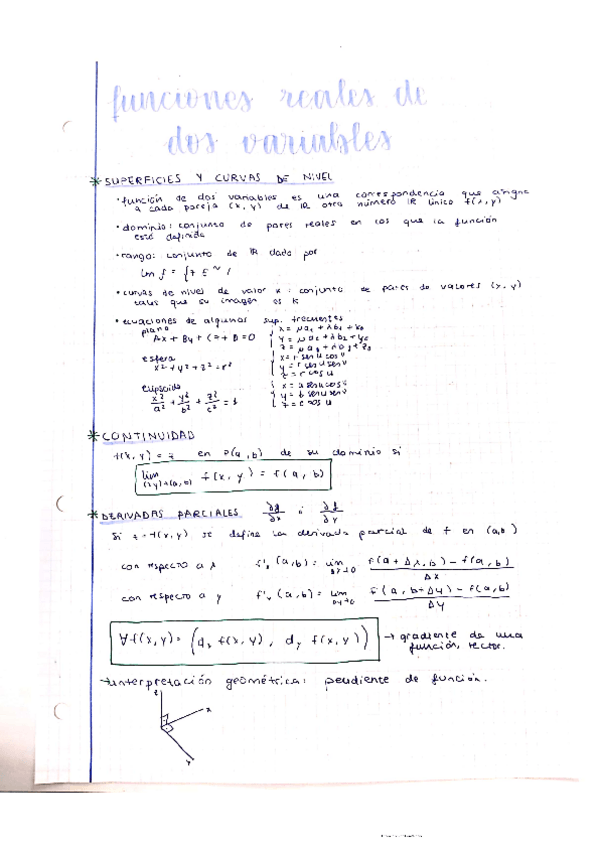 funciones reales de
dos variables
* SUPERFICIES Y CURVAS DE NIVEL
• función de dos variables es una correspondencia que asigna
a cada pareja (x, y) de IR otro número IR único f(x, y)
• dominio: conjunto de pares reales en los que la función
está definida
• rango: conjunto de IR dado por
• curvas de nivel de valor k: conjunto de pares de valores (x, y)
tales que su imagen es k
• ecuaciones de algunas sup. frecuentes
plano
esfera
x² + y² + z² = r²
x = r senu cosv
y = r senu senv
z = r cosu
elipsoide
x²/a² + y²/b² + z²/c² = 1
x = a senu cosv
y = b senu senv
z = c cosu
* CONTINUIDAD
f(x, y) = z en P(a, b) de su dominio si
lim (x,y)→(a,b) f(x, y) = f(a, b)
* DERIVADAS PARCIALES ∂f/∂x ∂f/∂y
Si z = f(x, y) se define la derivada parcial de f en (a, b)
con respecto a x f'x (a, b) = lim Δx→0 f(a + Δx, b) - f(a, b) / Δx
con respecto a y f'y (a, b) = lim Δy→0 f(a, b + Δy) - f(a, b) / Δy
∇f(x, y) = (dx f(x, y), dy f(x, y)) → gradiente de una
función, vector.
→ interpretación geométrica: pendiente de función.
z
x
y